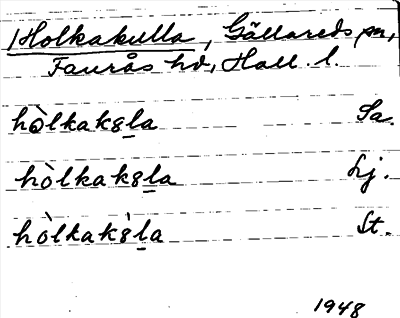 Holkakulla, Gällareds sn,
Faurås hd, Hall. l.
hòlkak8la Sa.
hòlkak8la Lj.
hòlkak8̀la St.
1948